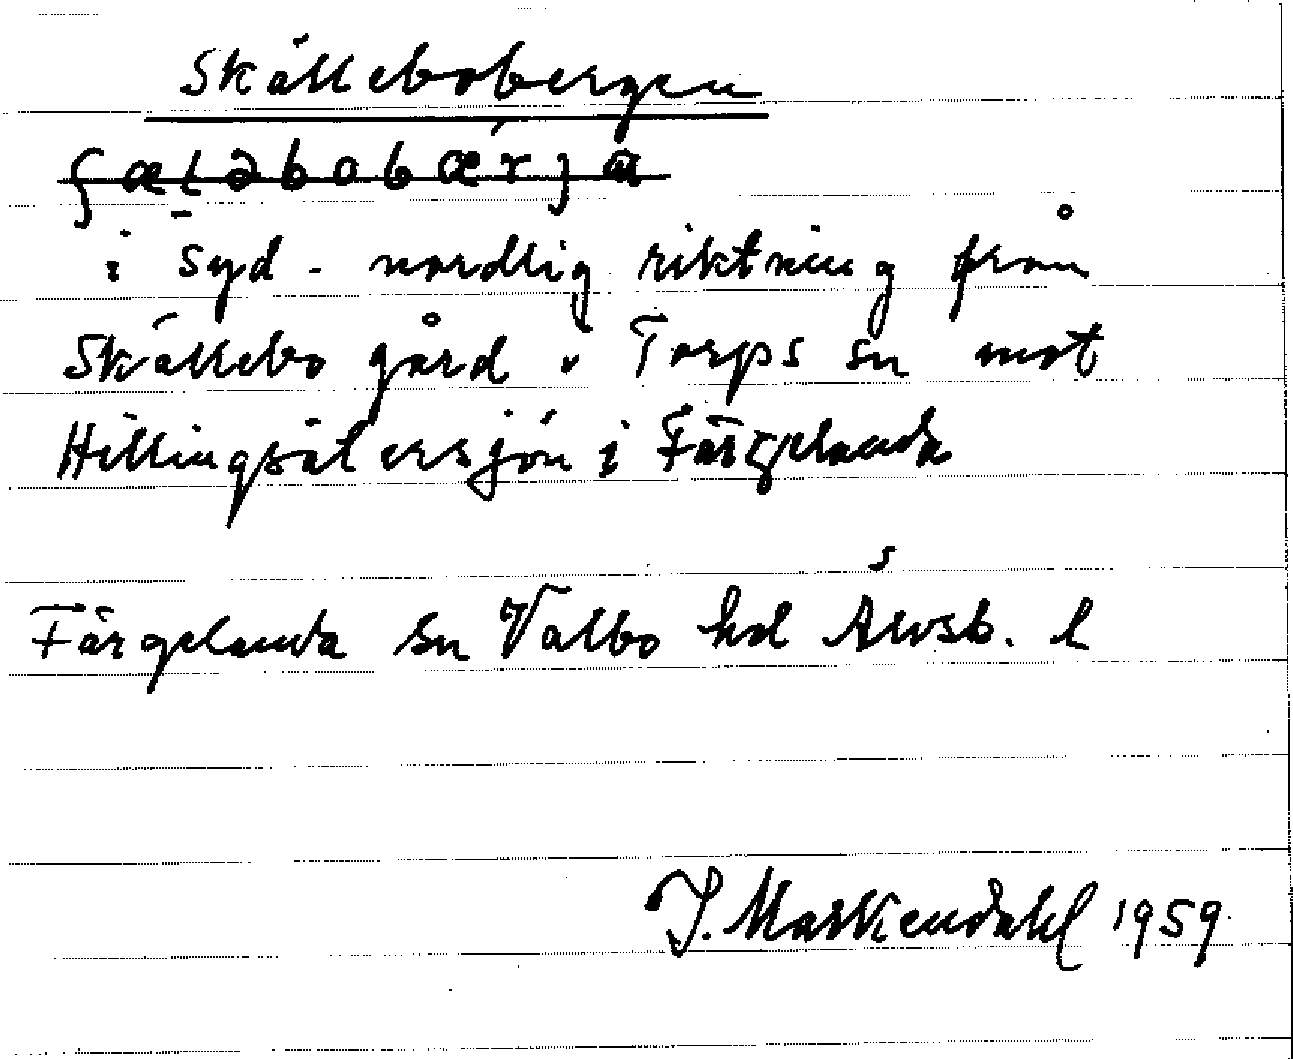 Skällebobergen
i syd-nordlig riktning från
Skällebo gård i Torps sn mot
Hillingsätersjön i Färgelanda
Färgelanda sn Valbo hd Älvsb. l
J. Markendahl 1959